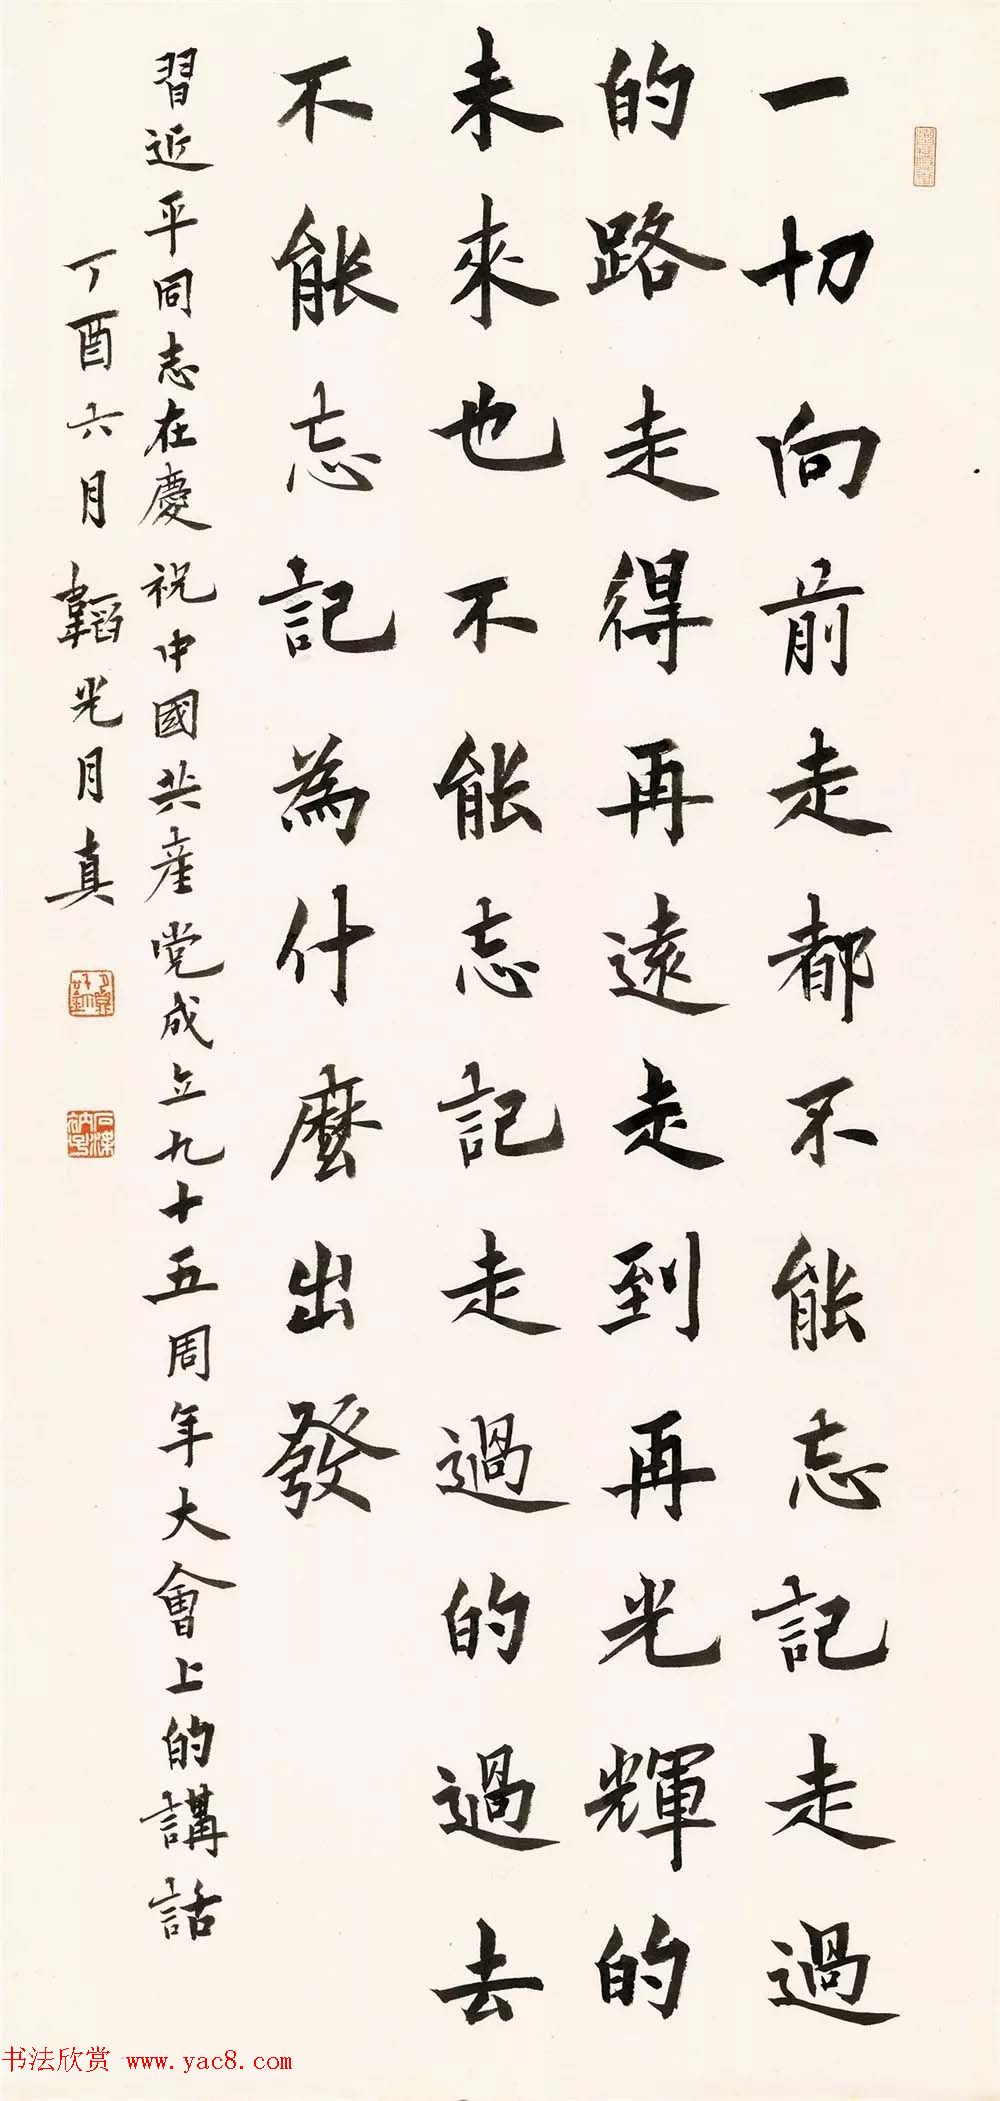 一切向前走都不能忘記走過
的路走得再遠走到再光輝的
未來也不能忘記走過的過去
不能忘記為什麼出發
習近平同志在慶祝中國共產党成立九十五周年大會上的講話
丁酉六月韜光月真
书法欣赏 www.yac8.com